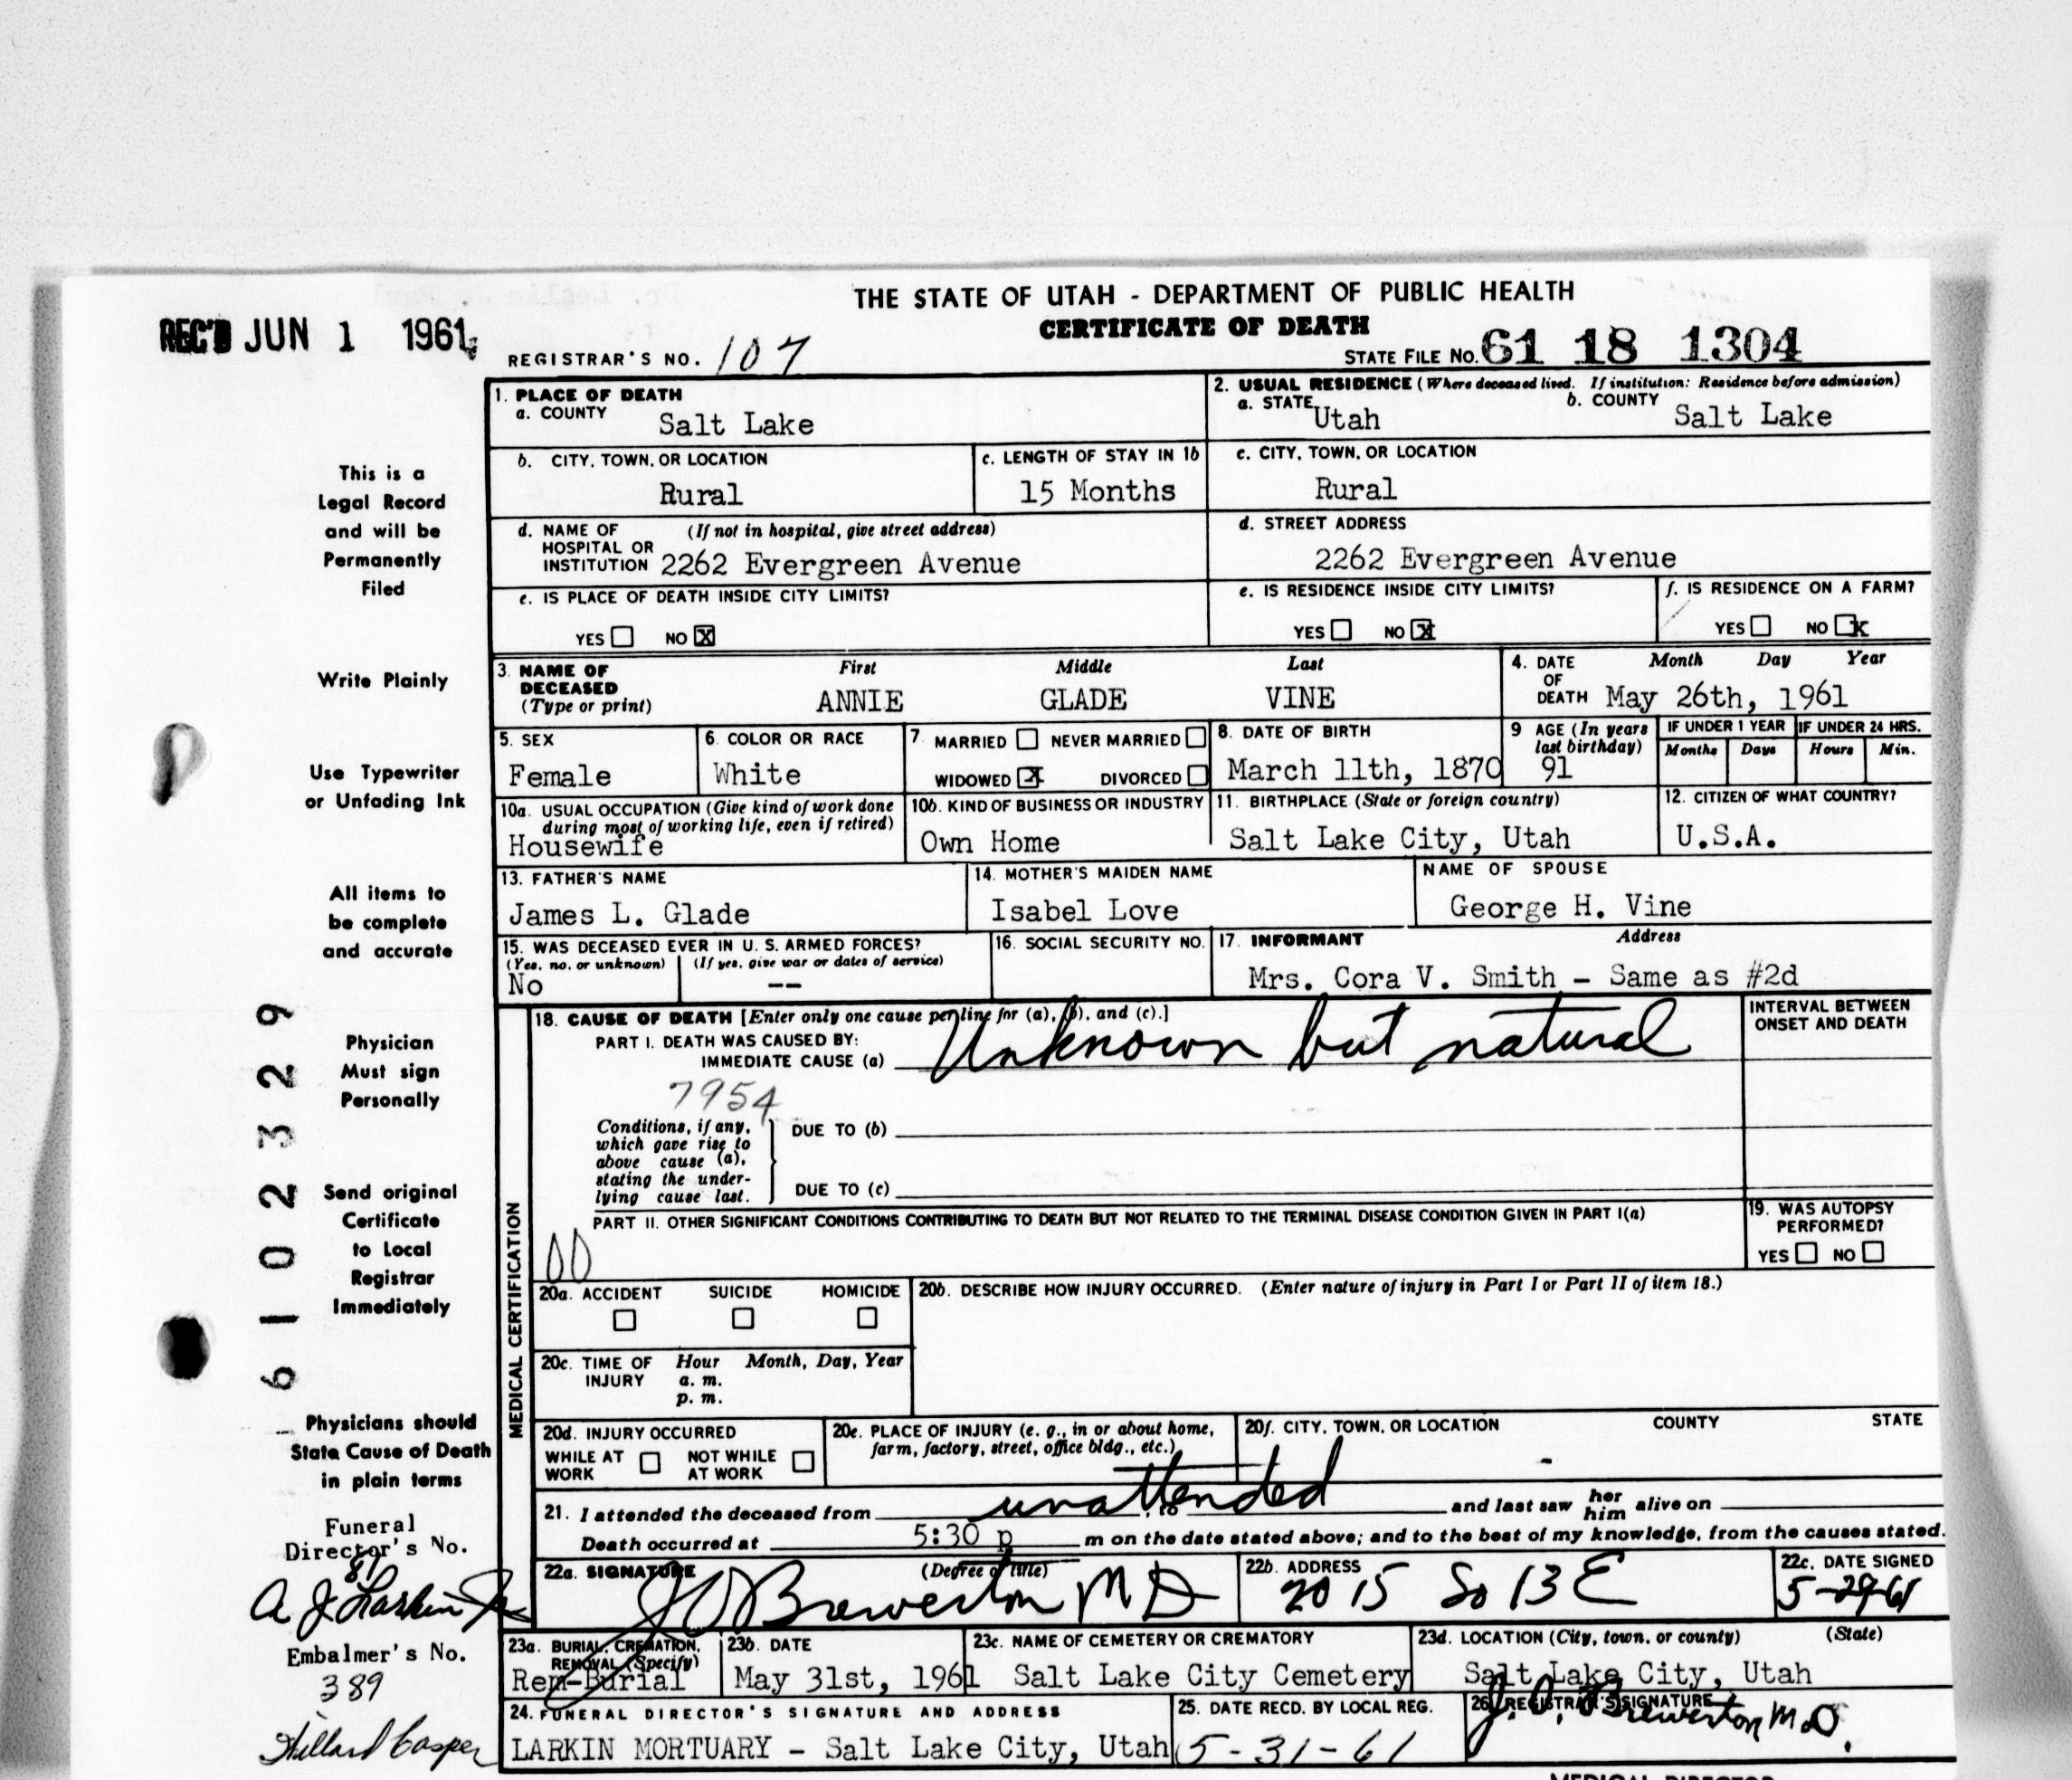 THE STATE OF UTAH - DEPARTMENT OF PUBLIC HEALTH
CERTIFICATE OF DEATH
REC'D JUN 1 1961
REGISTRAR'S NO. 107
STATE FILE NO. 61 18 1304
1. PLACE OF DEATH
a. COUNTY Salt Lake
2. USUAL RESIDENCE (Where deceased lived. If institution: Residence before admission)
a. STATE Utah b. COUNTY Salt Lake
b. CITY, TOWN, OR LOCATION
Rural
c. LENGTH OF STAY IN 1b
15 Months
c. CITY, TOWN, OR LOCATION
Rural
d. NAME OF (If not in hospital, give street address)
HOSPITAL OR
INSTITUTION 2262 Evergreen Avenue
d. STREET ADDRESS
2262 Evergreen Avenue
e. IS PLACE OF DEATH INSIDE CITY LIMITS?
YES NO X
e. IS RESIDENCE INSIDE CITY LIMITS?
YES NO X
f. IS RESIDENCE ON A FARM?
YES NO X
3. NAME OF DECEASED (Type or print)
First Middle Last
ANNIE GLADE VINE
4. DATE OF DEATH
Month Day Year
May 26th, 1961
5. SEX
Female
6. COLOR OR RACE
White
7. MARRIED NEVER MARRIED
WIDOWED X DIVORCED
8. DATE OF BIRTH
March 11th, 1870
9 AGE (In years
last birthday)
91
IF UNDER 1 YEAR
Months Days
IF UNDER 24 HRS.
Hours Min.
10a. USUAL OCCUPATION (Give kind of work done
during most of working life, even if retired)
Housewife
10b. KIND OF BUSINESS OR INDUSTRY
Own Home
11. BIRTHPLACE (State or foreign country)
Salt Lake City, Utah
12. CITIZEN OF WHAT COUNTRY?
U.S.A.
13. FATHER'S NAME
James L. Glade
14. MOTHER'S MAIDEN NAME
Isabel Love
NAME OF SPOUSE
George H. Vine
15. WAS DECEASED EVER IN U. S. ARMED FORCES?
(Yes, no, or unknown) (If yes, give war or dates of service)
No --
16. SOCIAL SECURITY NO.
17. INFORMANT Address
Mrs. Cora V. Smith - Same as #2d
18. CAUSE OF DEATH [Enter only one cause per line for (a), (b), and (c).]
PART I. DEATH WAS CAUSED BY:
IMMEDIATE CAUSE (a) Unknown but natural
7954
INTERVAL BETWEEN
ONSET AND DEATH
Conditions, if any,
which gave rise to
above cause (a),
stating the under-
lying cause last.
DUE TO (b)
DUE TO (c)
PART II. OTHER SIGNIFICANT CONDITIONS CONTRIBUTING TO DEATH BUT NOT RELATED TO THE TERMINAL DISEASE CONDITION GIVEN IN PART I(a)
00
19. WAS AUTOPSY
PERFORMED?
YES NO
MEDICAL CERTIFICATION
20a. ACCIDENT SUICIDE HOMICIDE
20b. DESCRIBE HOW INJURY OCCURRED. (Enter nature of injury in Part I or Part II of item 18.)
20c. TIME OF INJURY
Hour Month, Day, Year
a. m.
p. m.
20d. INJURY OCCURRED
WHILE AT WORK NOT WHILE AT WORK
20e. PLACE OF INJURY (e. g., in or about home,
farm, factory, street, office bldg., etc.)
20f. CITY, TOWN, OR LOCATION COUNTY STATE
21. I attended the deceased from unattended, to and last saw her him alive on
Death occurred at 5:30 p m on the date stated above; and to the best of my knowledge, from the causes stated.
22a. SIGNATURE (Degree or title)
J O Brewerton M D
22b. ADDRESS
2015 So 13 E
22c. DATE SIGNED
5-29-61
23a. BURIAL, CREMATION,
REMOVAL (Specify)
Rem-Burial
23b. DATE
May 31st, 1961
23c. NAME OF CEMETERY OR CREMATORY
Salt Lake City Cemetery
23d. LOCATION (City, town, or county) (State)
Salt Lake City, Utah
24. FUNERAL DIRECTOR'S SIGNATURE AND ADDRESS
LARKIN MORTUARY - Salt Lake City, Utah
25. DATE RECD. BY LOCAL REG.
5-31-61
26. REGISTRAR'S SIGNATURE
J. O. Brewerton M.D.
MEDICAL DIRECTOR
This is a
Legal Record
and will be
Permanently
Filed
Write Plainly
Use Typewriter
or Unfading Ink
All items to
be complete
and accurate
Physician
Must sign
Personally
Send original
Certificate
to Local
Registrar
Immediately
Physicians should
State Cause of Death
in plain terms
6102329
Funeral
Director's No.
81
A J Larkin Jr
Embalmer's No.
389
Hillard Casper